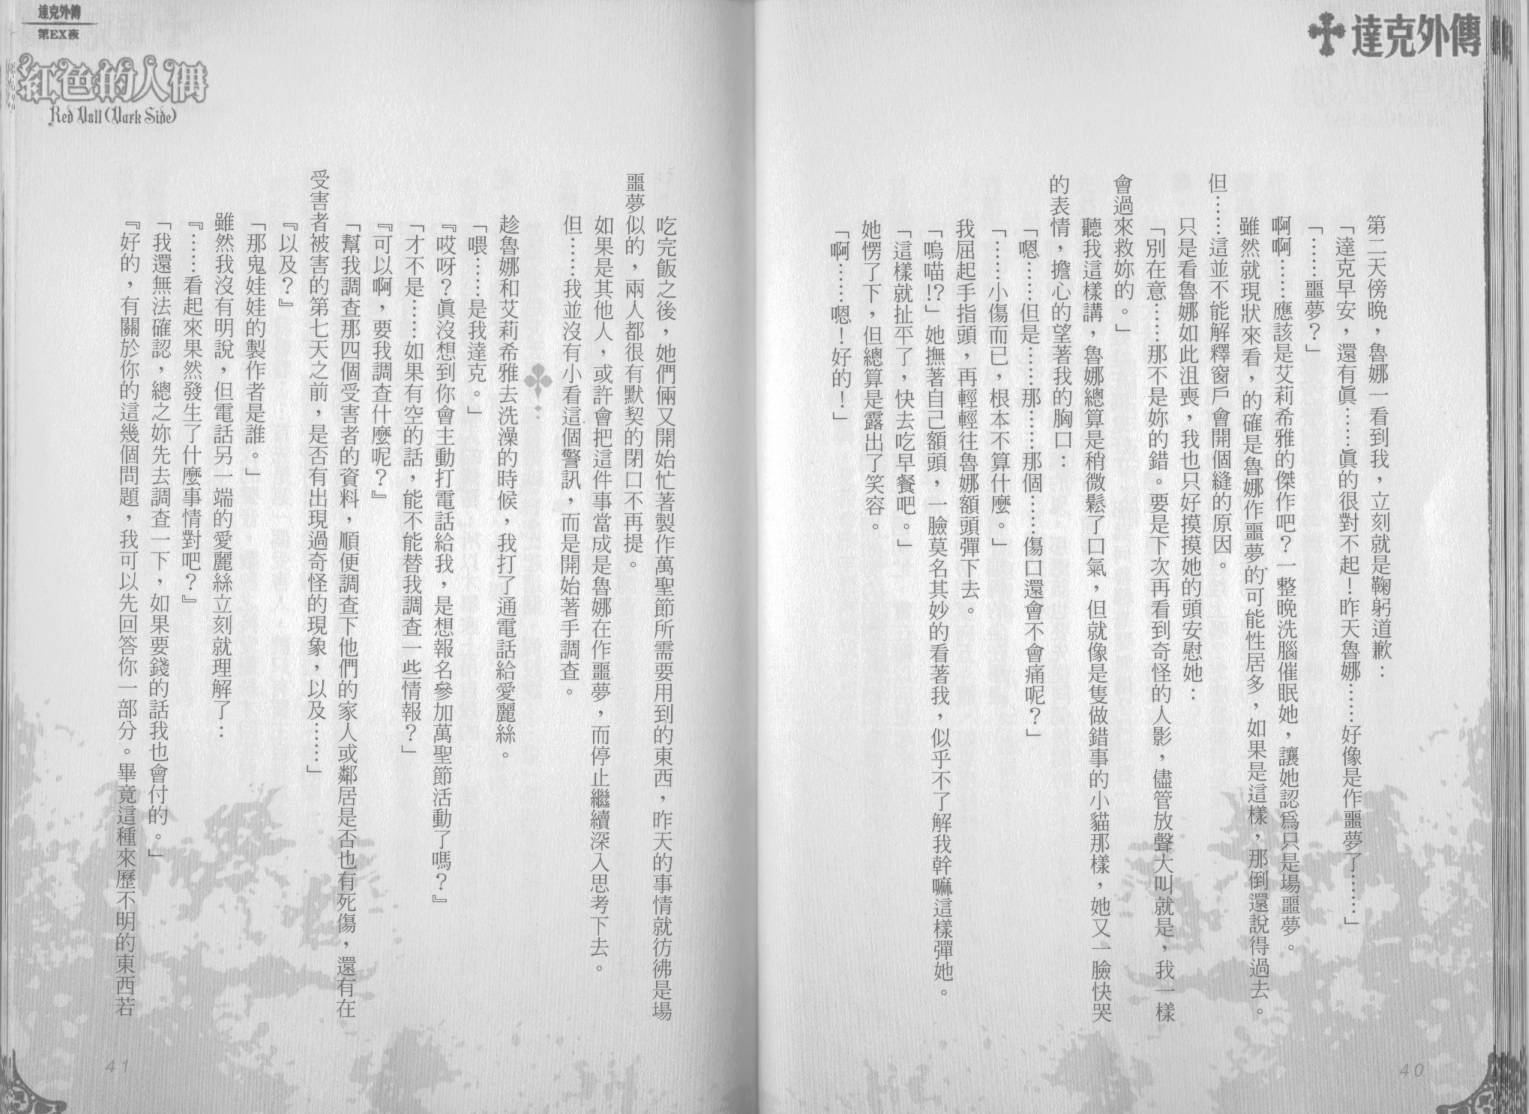 達克外傳
第二天傍晚，魯娜一看到我，立刻就是鞠躬道歉：
「達克早安，還有真……真的很對不起！昨天魯娜……好像是作噩夢了……」
「……噩夢？」
啊啊……應該是艾莉希雅的傑作吧？一整晚洗腦催眠她，讓她認為只是場噩夢。
雖然就現狀來看，的確是魯娜作噩夢的可能性居多，如果是這樣，那倒還說得過去。
但……這並不能解釋窗戶會開個縫的原因。
只是看魯娜如此沮喪，我也只好摸摸她的頭安慰她：
「別在意……那不是妳的錯。要是下次再看到奇怪的人影，儘管放聲大叫就是，我一樣
會過來救妳的。」
聽我這樣講，魯娜總算是稍微鬆了口氣，但就像是隻做錯事的小貓那樣，她又一臉快哭
的表情，擔心的望著我的胸口：
「嗯……但是……那……那個……傷口還會不會痛呢？」
「……小傷而已，根本不算什麼。」
我屈起手指頭，再輕輕往魯娜額頭彈下去。
「嗚喵!?」她撫著自己額頭，一臉莫名其妙的看著我，似乎不了解我幹嘛這樣彈她。
「這樣就扯平了，快去吃早餐吧。」
她愣了下，但總算是露出了笑容。
「啊……嗯！好的！」
40
達克外傳
第EX夜
紅色的人偶
Red Doll (Dark Side)
吃完飯之後，她們倆又開始忙著製作萬聖節所需要用到的東西，昨天的事情就彷彿是場
噩夢似的，兩人都很有默契的閉口不再提。
如果是其他人，或許會把這件事當成是魯娜在作噩夢，而停止繼續深入思考下去。
但……我並沒有小看這個警訊，而是開始著手調查。
趁魯娜和艾莉希雅去洗澡的時候，我打了通電話給愛麗絲。
「喂……是我達克。」
『哎呀？真沒想到你會主動打電話給我，是想報名參加萬聖節活動了嗎？』
「才不是……如果有空的話，能不能替我調查一些情報？」
『可以啊，要我調查什麼呢？』
「幫我調查那四個受害者的資料，順便調查下他們的家人或鄰居是否也有死傷，還有在
受害者被害的第七天之前，是否有出現過奇怪的現象，以及……」
『以及？』
「那鬼娃娃的製作者是誰。」
雖然我沒有明說，但電話另一端的愛麗絲立刻就理解了：
『……看起來果然發生了什麼事情對吧？』
「我還無法確認，總之妳先去調查一下，如果要錢的話我也會付的。」
『好的，有關於你的這幾個問題，我可以先回答你一部分。畢竟這種來歷不明的東西若
41